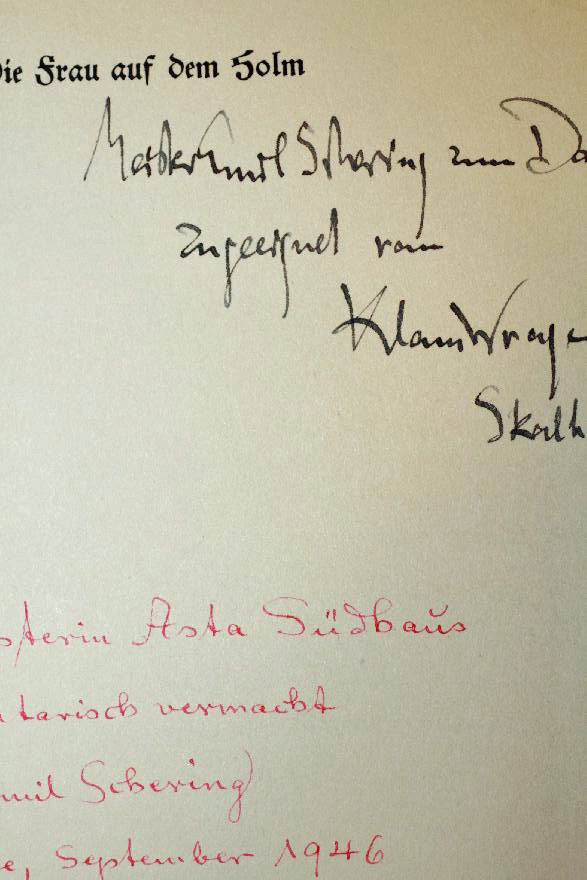 Die Frau auf dem Holm
Meister Emil Schering zum Da
zugeeignet vom
Klaus Wrage
Skalk
sterin Asta Südhaus
tarisch vermacht
mil Schering)
e, September 1946